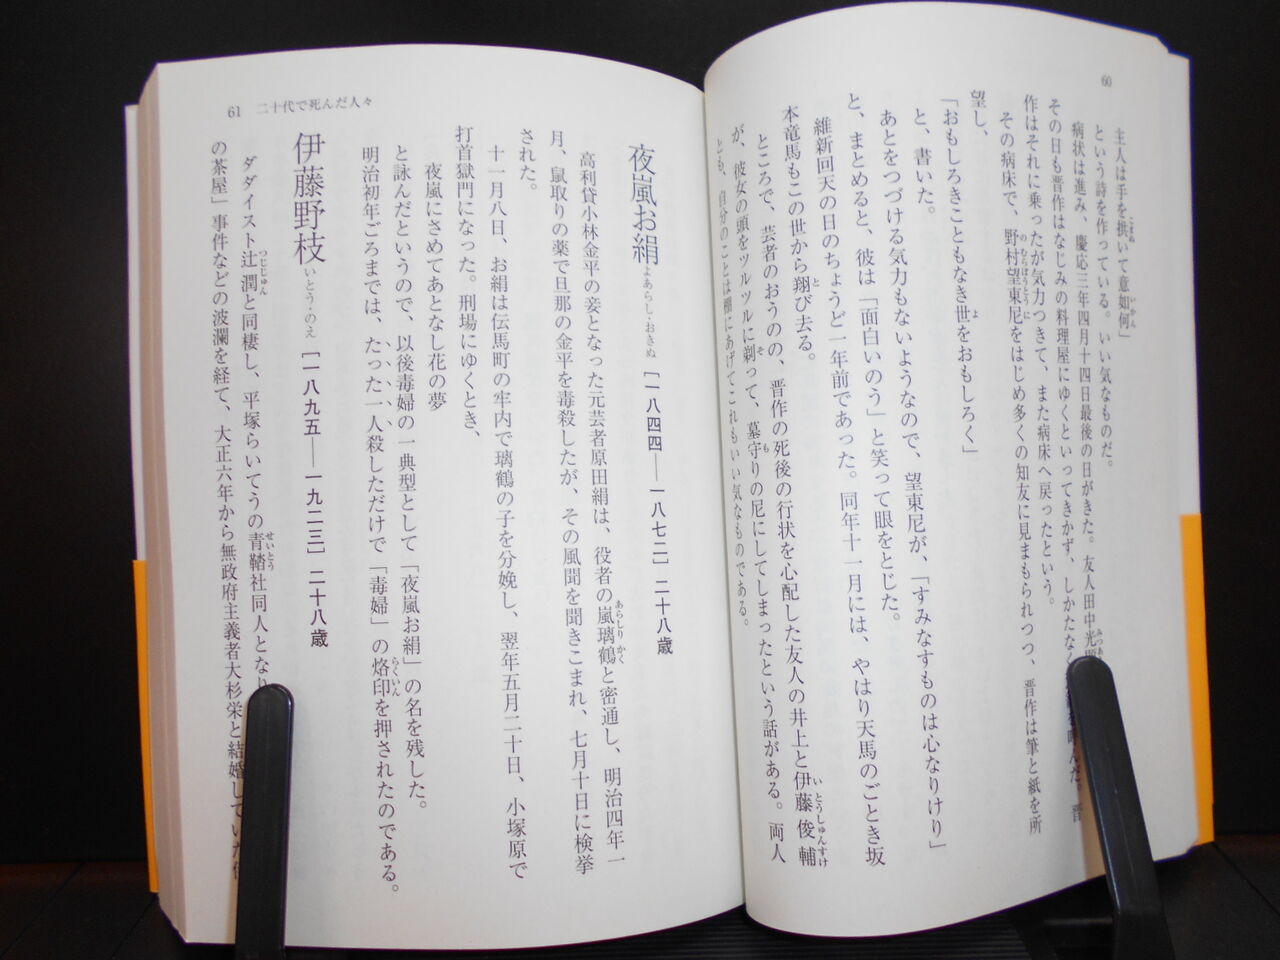 60
主人は手を拱いて意如何」
という詩を作っている。いい気なものだ。
病状は進み、慶応三年四月十四日最後の日がきた。友人田中光
その日も晋作はなじみの料理屋にゆくといってきかず、しかたなく
んだ。晋
作はそれに乗ったが気力つきて、また病床へ戻ったという。
その病床で、野村望東尼をはじめ多くの知友に見まもられつつ、晋作は筆と紙を所
望し、
「おもしろきこともなき世をおもしろく」
と、書いた。
あとをつづける気力もないようなので、望東尼が、「すみなすものは心なりけり」
と、まとめると、彼は「面白いのう」と笑って眼をとじた。
維新回天の日のちょうど一年前であった。同年十一月には、やはり天馬のごとき坂
本竜馬もこの世から翔び去る。
ところで、芸者のおうのの、晋作の死後の行状を心配した友人の井上と伊藤俊輔
が、彼女の頭をツルツルに剃って、墓守りの尼にしてしまったという話がある。両人
とも、自分のことは棚にあげてこれもいい気なものである。
61 二十代で死んだ人々
夜嵐お絹 よあらし・おきぬ [一八四四——一八七二] 二十八歳
高利貸小林金平の妾となった元芸者原田絹は、役者の嵐璃鶴と密通し、明治四年一
月、鼠取りの薬で旦那の金平を毒殺したが、その風聞を聞きこまれ、七月十日に検挙
された。
十一月八日、お絹は伝馬町の牢内で璃鶴の子を分娩し、翌年五月二十日、小塚原で
打首獄門になった。刑場にゆくとき、
夜嵐にさめてあとなし花の夢
と詠んだというので、以後毒婦の一典型として「夜嵐お絹」の名を残した。
明治初年ごろまでは、たった一人殺しただけで「毒婦」の烙印を押されたのである。
伊藤野枝 いとう・のえ [一八九五——一九二三] 二十八歳
ダダイスト辻潤と同棲し、平塚らいてうの青鞜社同人となり
の茶屋」事件などの波瀾を経て、大正六年から無政府主義者大杉栄と結婚していた